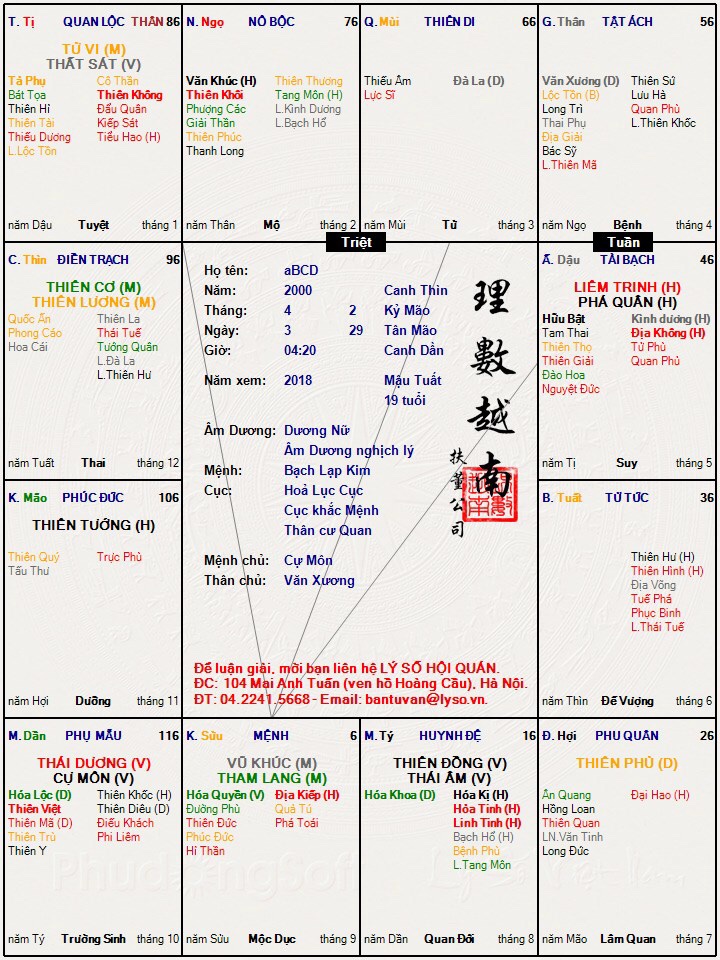 T. Tị QUAN LỘC THÂN 86
TỬ VI (M)
THẤT SÁT (V)
Tả Phụ Cô Thần
Bát Tọa Thiên Không
Thiên Hỉ Đẩu Quân
Thiên Tài Kiếp Sát
Thiếu Dương Tiểu Hao (H)
L.Lộc Tồn
năm Dậu Tuyệt tháng 1
N. Ngọ NÔ BỘC 76
Văn Khúc (H) Thiên Thương
Thiên Khôi Tang Môn (H)
Phượng Các L.Kình Dương
Giải Thần L.Bạch Hổ
Thiên Phúc
Thanh Long
năm Thân Mộ tháng 2
Q. Mùi THIÊN DI 66
Thiếu Âm Đà La (D)
Lực Sĩ
năm Mùi Tử tháng 3
G. Thân TẬT ÁCH 56
Văn Xương (D) Thiên Sứ
Lộc Tồn (B) Lưu Hà
Long Trì Quan Phù
Thai Phụ L.Thiên Khốc
Địa Giải
Bác Sỹ
L.Thiên Mã
năm Ngọ Bệnh tháng 4
Triệt
Tuần
C. Thìn ĐIỀN TRẠCH 96
THIÊN CƠ (M)
THIÊN LƯƠNG (M)
Quốc Ấn Thiên La
Phong Cáo Thái Tuế
Hoa Cái Tướng Quân
L.Đà La
L.Thiên Hư
năm Tuất Thai tháng 12
Họ tên: aBCD
Năm: 2000 Canh Thìn
Tháng: 4 2 Kỷ Mão
Ngày: 3 29 Tân Mão
Giờ: 04:20 Canh Dần
Năm xem: 2018 Mậu Tuất
19 tuổi
Âm Dương: Dương Nữ
Âm Dương nghịch lý
Mệnh: Bạch Lạp Kim
Cục: Hoả Lục Cục
Cục khắc Mệnh
Thân cư Quan
Mệnh chủ: Cự Môn
Thân chủ: Văn Xương
理
數
越
南
扶
董
公
司
Để luận giải, mời bạn liên hệ LÝ SỐ HỘI QUÁN.
ĐC: 104 Mai Anh Tuấn (ven hồ Hoàng Cầu), Hà Nội.
ĐT: 04.2241.5668 - Email: bantuvan@lyso.vn.
Ấ. Dậu TÀI BẠCH 46
LIÊM TRINH (H)
PHÁ QUÂN (H)
Hữu Bật Kình dương (H)
Tam Thai Địa Không (H)
Thiên Thọ Tử Phù
Thiên Giải Quán Phù
Đào Hoa
Nguyệt Đức
năm Tị Suy tháng 5
K. Mão PHÚC ĐỨC 106
THIÊN TƯỚNG (H)
Thiên Quý Trực Phù
Tấu Thư
năm Hợi Dưỡng tháng 11
B. Tuất TỬ TỨC 36
Thiên Hư (H)
Thiên Hình (H)
Địa Võng
Tuế Phá
Phục Binh
L.Thái Tuế
năm Thìn Đế Vượng tháng 6
M. Dần PHỤ MẪU 116
THÁI DƯƠNG (V)
CỰ MÔN (V)
Hóa Lộc (D) Thiên Khốc (H)
Thiên Việt Thiên Diêu (D)
Thiên Mã (D) Điếu Khách
Thiên Trù Phi Liêm
Thiên Y
năm Tý Trường Sinh tháng 10
K. Sửu MỆNH 6
VŨ KHÚC (M)
THAM LANG (M)
Hóa Quyền (V) Địa Kiếp (H)
Đường Phù Quả Tú
Thiên Đức Phá Toái
Phúc Đức
Hỉ Thần
năm Sửu Mộc Dục tháng 9
M. Tý HUYNH ĐỆ 16
THIÊN ĐỒNG (V)
THÁI ÂM (V)
Hóa Khoa (D) Hóa Kị (H)
Hỏa Tinh (H)
Linh Tinh (H)
Bạch Hổ (H)
Bệnh Phù
L.Tang Môn
năm Dần Quan Đới tháng 8
Đ. Hợi PHU QUÂN 26
THIÊN PHỦ (D)
Ân Quang Đại Hao (H)
Hồng Loan
Thiên Quan
LN.Văn Tinh
Long Đức
năm Mão Lâm Quan tháng 7